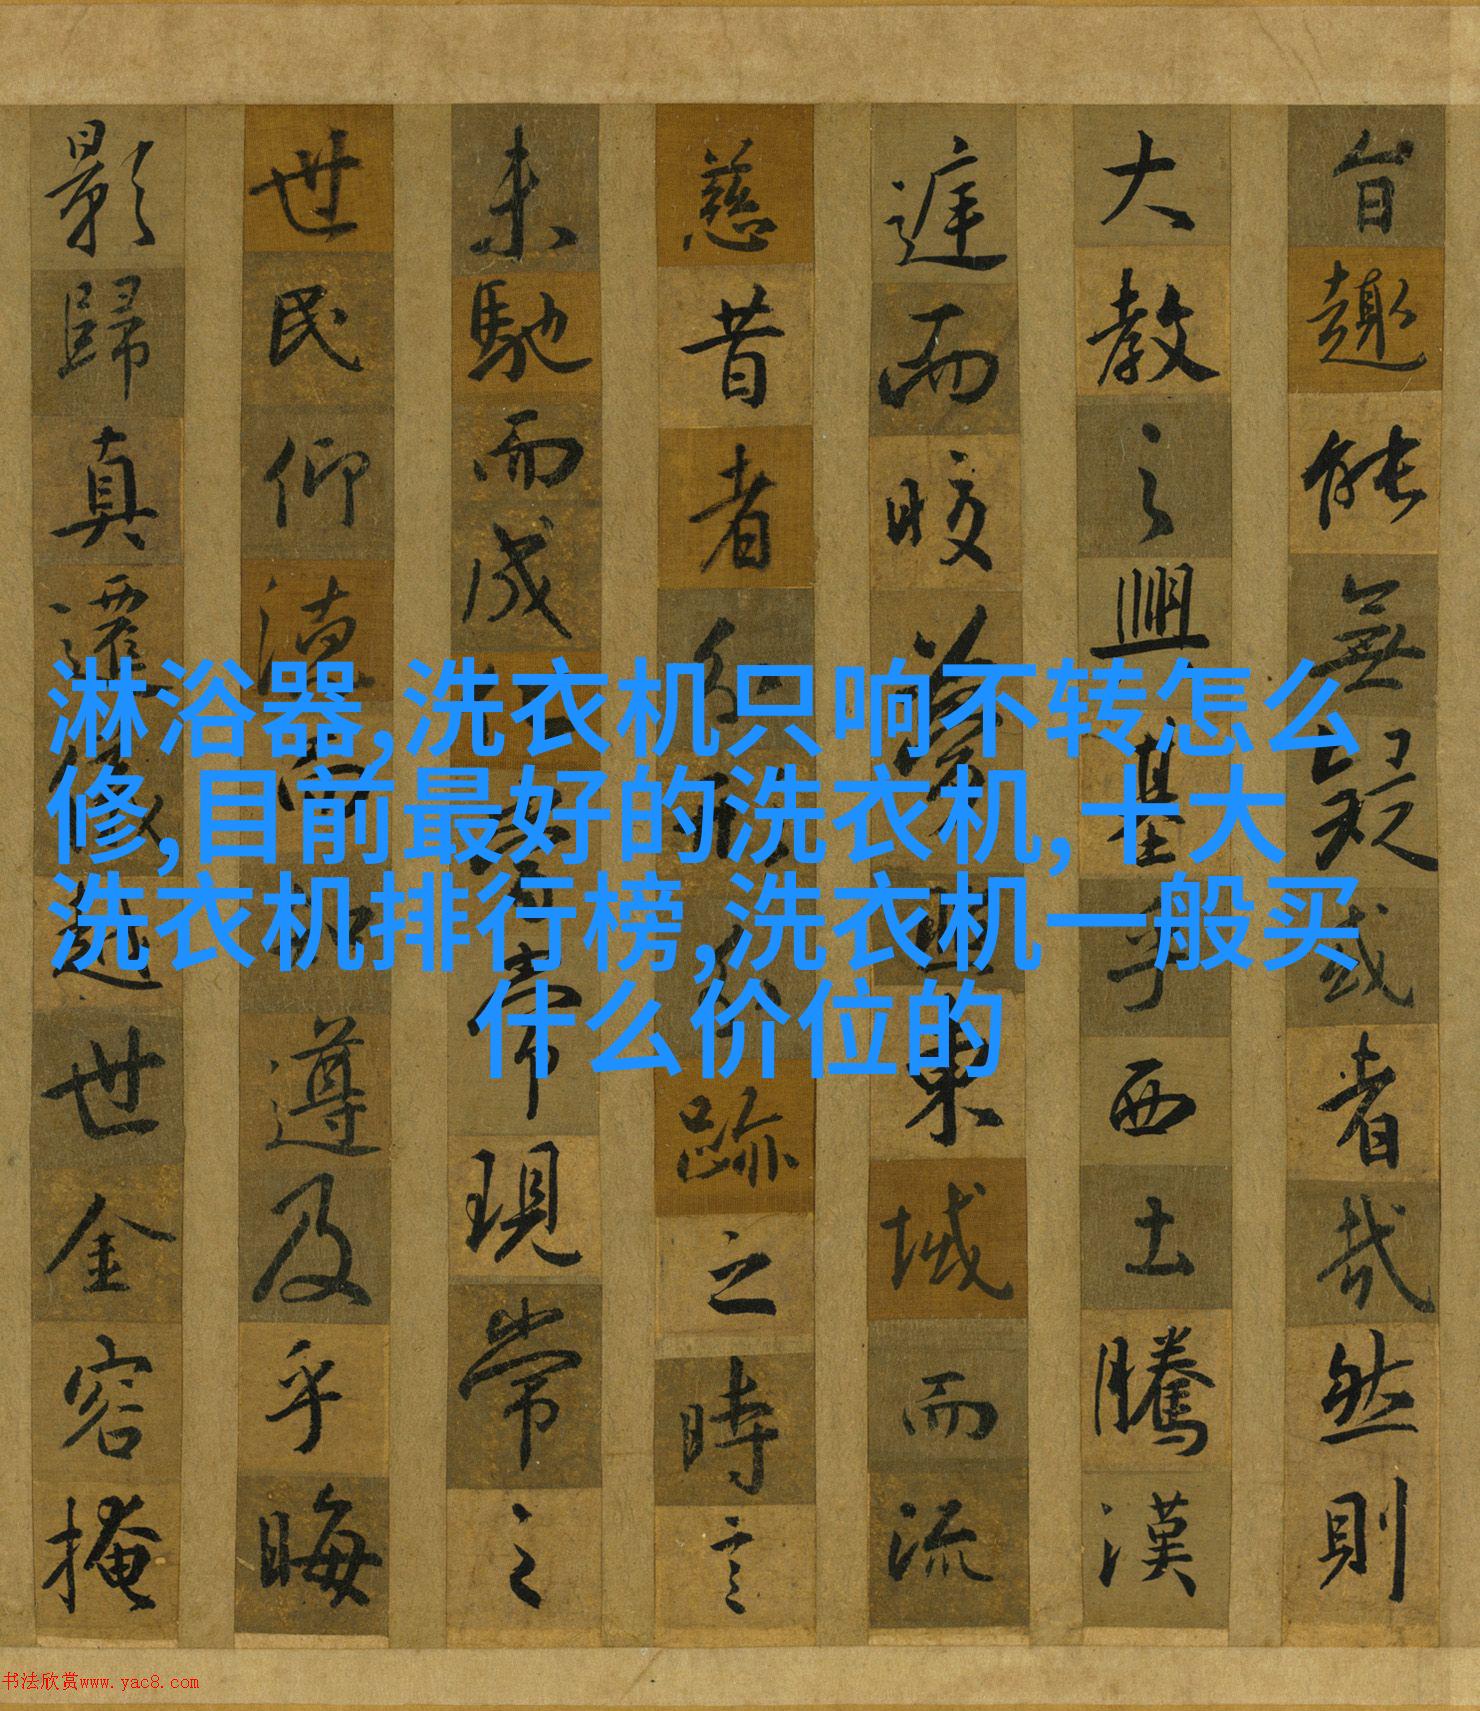 旨趣能無疑或者哉然則
大教之興基乎西土騰漢
庭而皎夢照東域而流
慈昔者分形分跡之時言
未馳而成化當常現常之
世民仰德而知遵及乎晦
影歸真遷儀越世金容掩
淋浴器,洗衣机只响不转怎么
修,目前最好的洗衣机,十大
洗衣机排行榜,洗衣机一般买
什么价位的
书法欣赏www.yac8.com